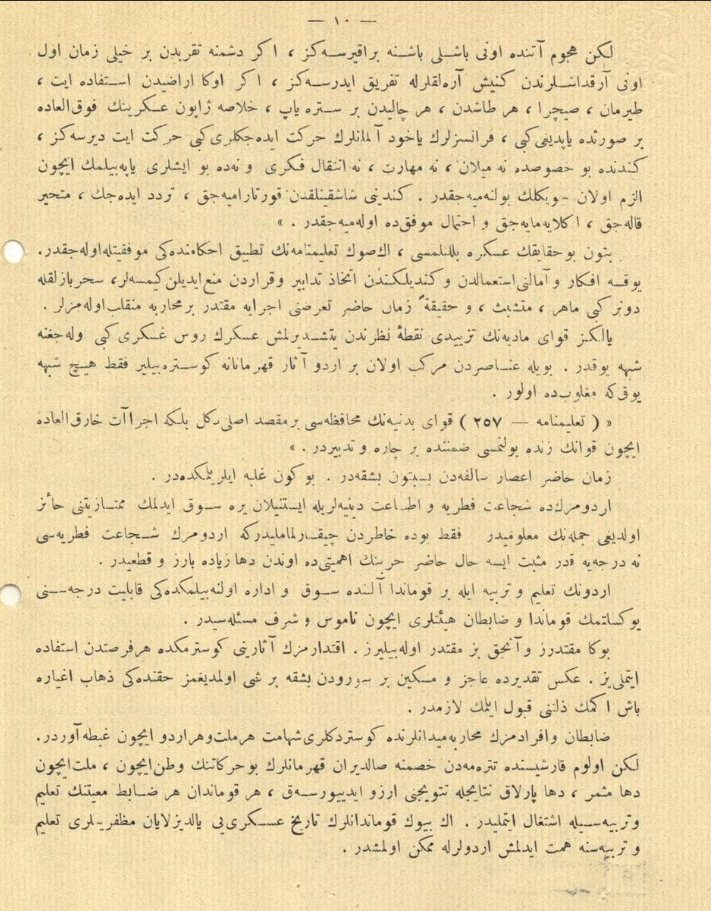 — ١٠ —
لكن هجوم آتنده اونی باشلی باشنه براقیرسه‌كز ، اكر دشمنه تقربدن بر خیلی زمان اول
اونی آرقداشلرندن كنیش آره‌لقلرله تفریق ایدرسه‌كز ، اكر اوكا اراضیدن استفاده ایت ،
طیرمان ، صیچرا ، هر طاشدن ، هر چالیدن بر ستره یاپ ، خلاصه ژاپون عسكرینك فوق‌العاده
بر صورتده یاپدیغی كبی ، فرانسزلرك یاخود آلمانلرك حركت ایده‌جكلری كبی حركت ایت دیرسه‌كز ،
كندنده بو خصوصده نه میلان ، نه مهارت ، نه انتقال فكری و نه‌ده بو ایشلری یاپه‌بیلمك ایچون
الزم اولان چویكلك بولنه‌میه‌جقدر . كندینی شاشقینلقدن قورتارامیه‌جق ، تردد ایده‌جك ، متحیر
قاله‌جق ، اكلایه‌مایه‌جق و احتمال موفق‌ده اوله‌میه‌جقدر . »
بتون بو حقایقك عسكره بللنلمسی ، اك‌صوك تعلیمنامه‌نك تطبیق احكامنده‌كی موفقیتله اوله‌جقدر.
یوقسه افكار و آمالی استعمالدن و كندیلكندن اتخاذ تدابیر و قراردن منع ایدیلن كیمسه‌لر، سحربازلقله
دونر كبی ماهر ، متشبث ، و حقیقةً زمان حاضر تعرضی اجرایه مقتدر بر محاربه منقلب اوله‌مزلر .
یالكز قوای مادیه‌نك تزییدی نقطۀ نظرندن یتشدیرلمش عسكرك روس عسكری كبی وله‌جغنه
شبهه یوقدر . بویله عناصردن مركب اولان بر اردو آثار قهرمانانه كوستره‌بیلیر فقط هیچ شبهه
یوق‌كه مغلوب‌ده اولور .
« ( تعلیمنامه — ٢٥٧ ) قوای بدنیه‌نك محافظه‌سی بر مقصد اصلی دكل بلكه اجراآت خارق‌العاده
ایچون قوانك زنده بولنمسی ضمننده بر چاره و تدبیردر . »
زمان حاضر اعصار سالفه‌دن بسبتون بشقه‌در . بو كون غلبه ایلریلمكده‌در .
اردومزك‌ده شجاعت فطریه و اطاعت دینیه‌لریله ایستنیلان یره سوق ایدلمك ممتازیتنی حائز
اولدیغی جمله‌نك معلومیدر فقط بوده خاطردن چیقارلمامالیدركه اردومزك شجاعت فطریه‌سی
نه درجه‌یه قدر مثبت ایسه حال حاضر حربنك اهمیتی‌ده اوندن دها زیاده بارز و قطعیدر .
اردونك تعلیم و تربیه ایله بر قوماندا آلتنده سوق و اداره اولنه‌بیلمكده‌كی قابلیت درجه‌سنی
یوكسلتمك قوماندا و ضابطان هیئتلری ایچون ناموس و شرف مسئله‌سیدر .
بوكا مقتدرز و آنجق بز مقتدر اوله‌بیلیرز . اقتدارمزك آثارینی كوسترمكده هر فرصتدن استفاده
ایتملی‌یز . عكس تقدیرده عاجز و مسكین بر سورودن بشقه بر شی اولمدیغمز حقنده‌كی ذهاب اغیاره
باش اكمك ذلتنی قبول ایتمك لازمدر .
ضابطان و افرادمزك محاربه میدانلرنده كوستردكلری شهامت هر ملت و هر اردو ایچون غبطه‌آوردر.
لكن اولوم قارشیسنده تتره‌مه‌دن خصمنه صالدیران قهرمانلرك بو حركاتنك وطن ایچون ، ملت ایچون
دها مثمر ، دها پارلاق نتایجله تتویجنی آرزو ایدییورسه‌ق ، هر قوماندان هر ضابط معیتنك تعلیم
و تربیه‌سیله اشتغال ایتملیدر . اك بیوك قوماندانلرك تاریخ عسكری‌یی یالدیزلایان مظفریتلری تعلیم
و تربیه‌سنه همت ایدلمش اردولرله ممكن اولمشدر .